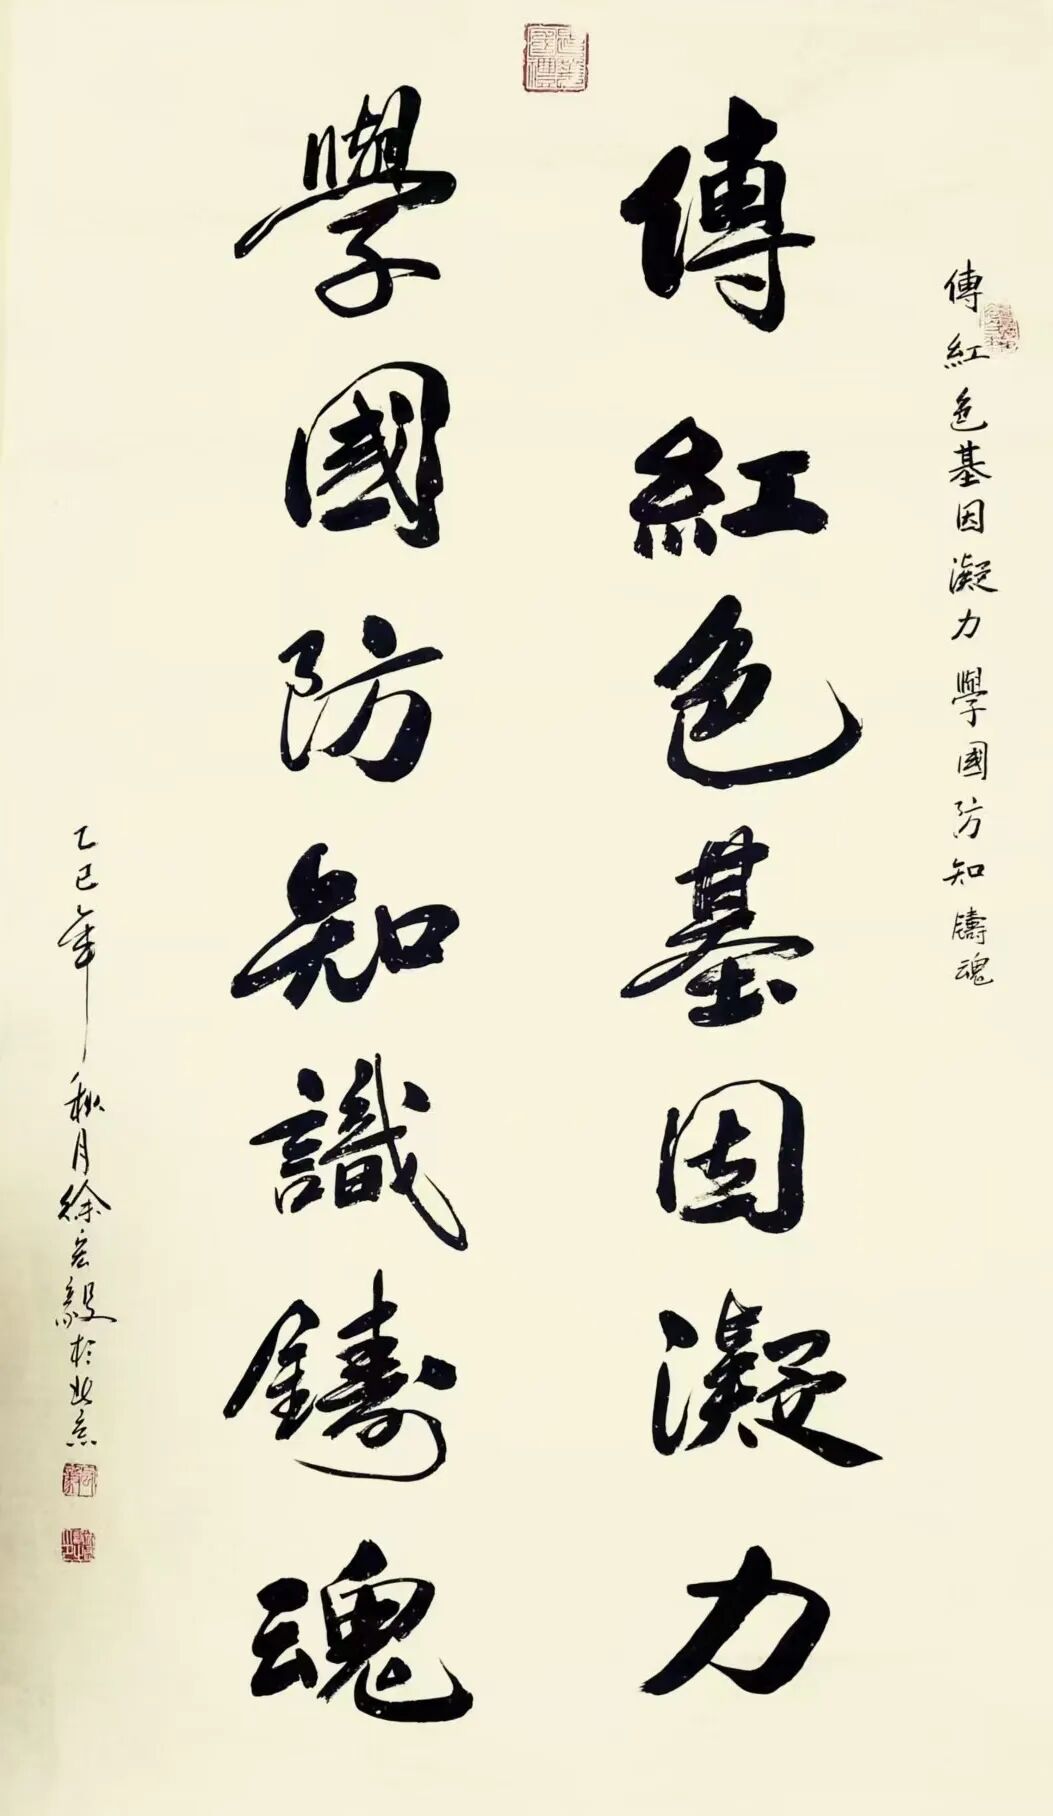 傳紅色基因凝力學國防知鑄魂
傳紅色基因凝力
學國防知識鑄魂
乙巳年秋月徐宏毅於北京